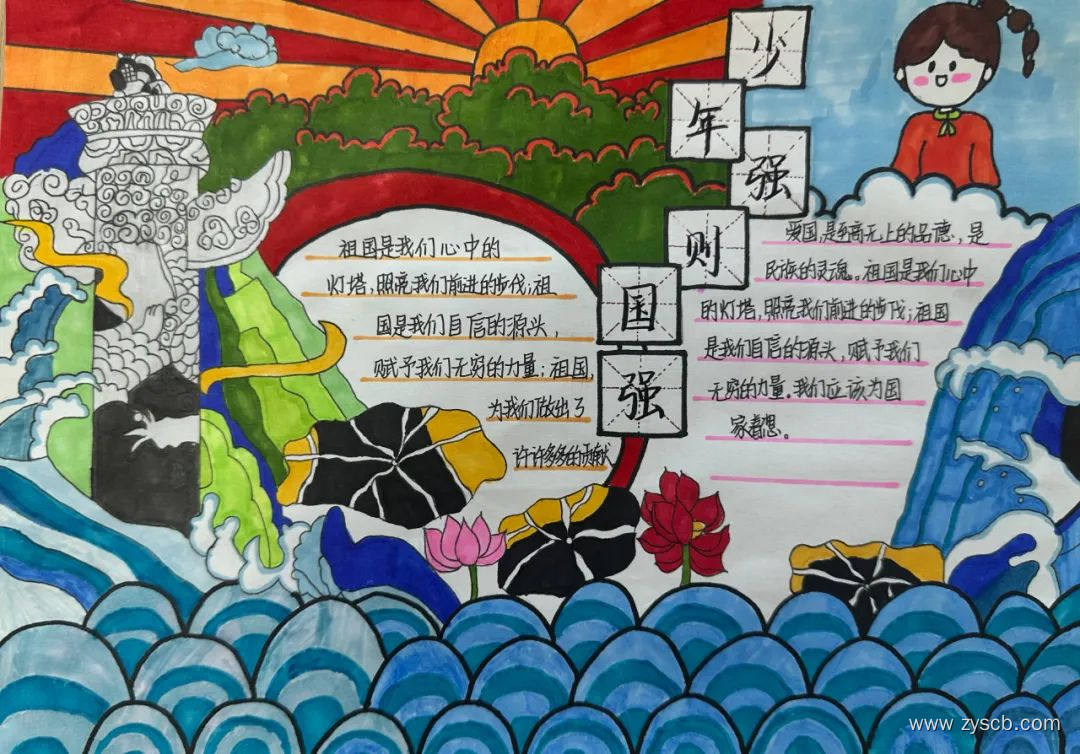 少年强则国强
祖国是我们心中的
灯塔，照亮我们前进的步伐；祖
国是我们自信的源头，
赋予我们无穷的力量；祖国
为我们做出了
许许多多的贡献
爱国，是至高无上的品德，是
民族的灵魂。祖国是我们心中
的灯塔，照亮我们前进的步伐；祖国
是我们自信的源头，赋予我们
无穷的力量。我们应该为国
家着想。
www.zyscb.com